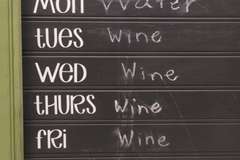 MON Water
tues Wine
WED Wine
thurs Wine
fri Wine